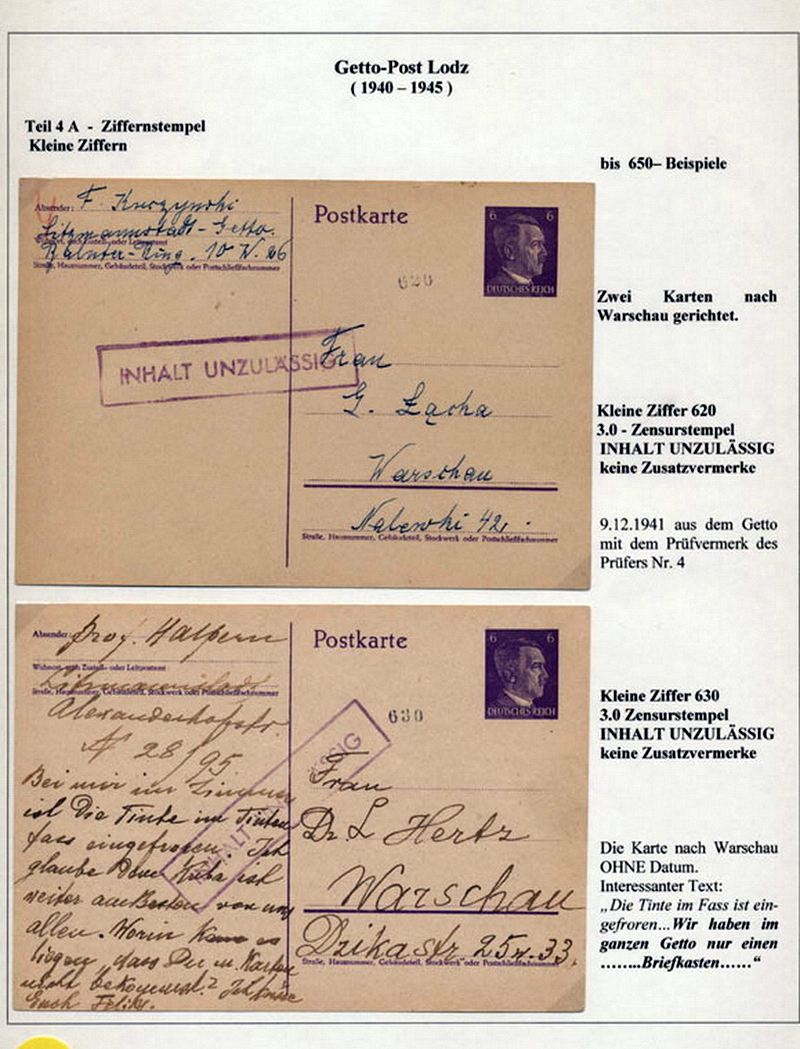 Getto-Post Lodz
( 1940 – 1945 )
Teil 4 A - Ziffernstempel
Kleine Ziffern
bis 650– Beispiele
Absender: F. Kurzynski
Litzmannstadt-Getto.
Wohnort, auch Zustell- oder Leitpostamt
Balüter-Ring. 10 W. 26
Straße, Hausnummer, Gebäudeteil, Stockwerk oder Postschließfachnummer
Postkarte
6 6
DEUTSCHES REICH
620
INHALT UNZULÄSSIG
Frau
G. Łącha
Warschau
Nalewki 42.
Straße, Hausnummer, Gebäudeteil, Stockwerk oder Postschließfachnummer
Zwei Karten nach
Warschau gerichtet.
Kleine Ziffer 620
3.0 - Zensurstempel
INHALT UNZULÄSSIG
keine Zusatzvermerke
9.12.1941 aus dem Getto
mit dem Prüfvermerk des
Prüfers Nr. 4
Absender: Halpern
Wohnort, auch Zustell- oder Leitpostamt
Litzmannstadt
Straße, Hausnummer, Gebäudeteil, Stockwerk oder Postschließfachnummer
Alexanderhofstr.
N 28/95
Bei mir im Zimmer
ist die Tinte im Tinten
fass eingefroren. Ich
glaube Kuba ist
weiter am Besten von uns
allen. Worin
liegen, dass Du m. Karten
nicht bekommst? Ich
Euch Feliks.
Postkarte
6 6
DEUTSCHES REICH
630
INHALT UNZULÄSSIG
Frau
Dr. L Hertz
Warschau
Dzikastr. 25 w. 33.
Straße, Hausnummer, Gebäudeteil, Stockwerk oder Postschließfachnummer
Kleine Ziffer 630
3.0 Zensurstempel
INHALT UNZULÄSSIG
keine Zusatzvermerke
Die Karte nach Warschau
OHNE Datum.
Interessanter Text:
„Die Tinte im Fass ist ein-
gefroren...Wir haben im
ganzen Getto nur einen
……..Briefkasten……“